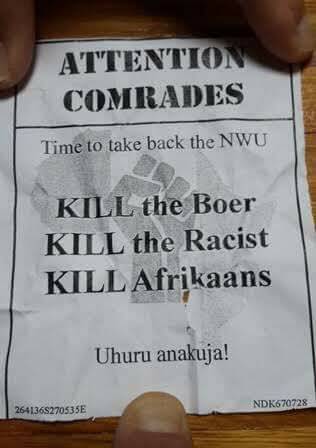 ATTENTION
COMRADES
Time to take back the NWU
KILL the Boer
KILL the Racist
KILL Afrikaans
Uhuru anakuja!
264136S270535E
NDK670728